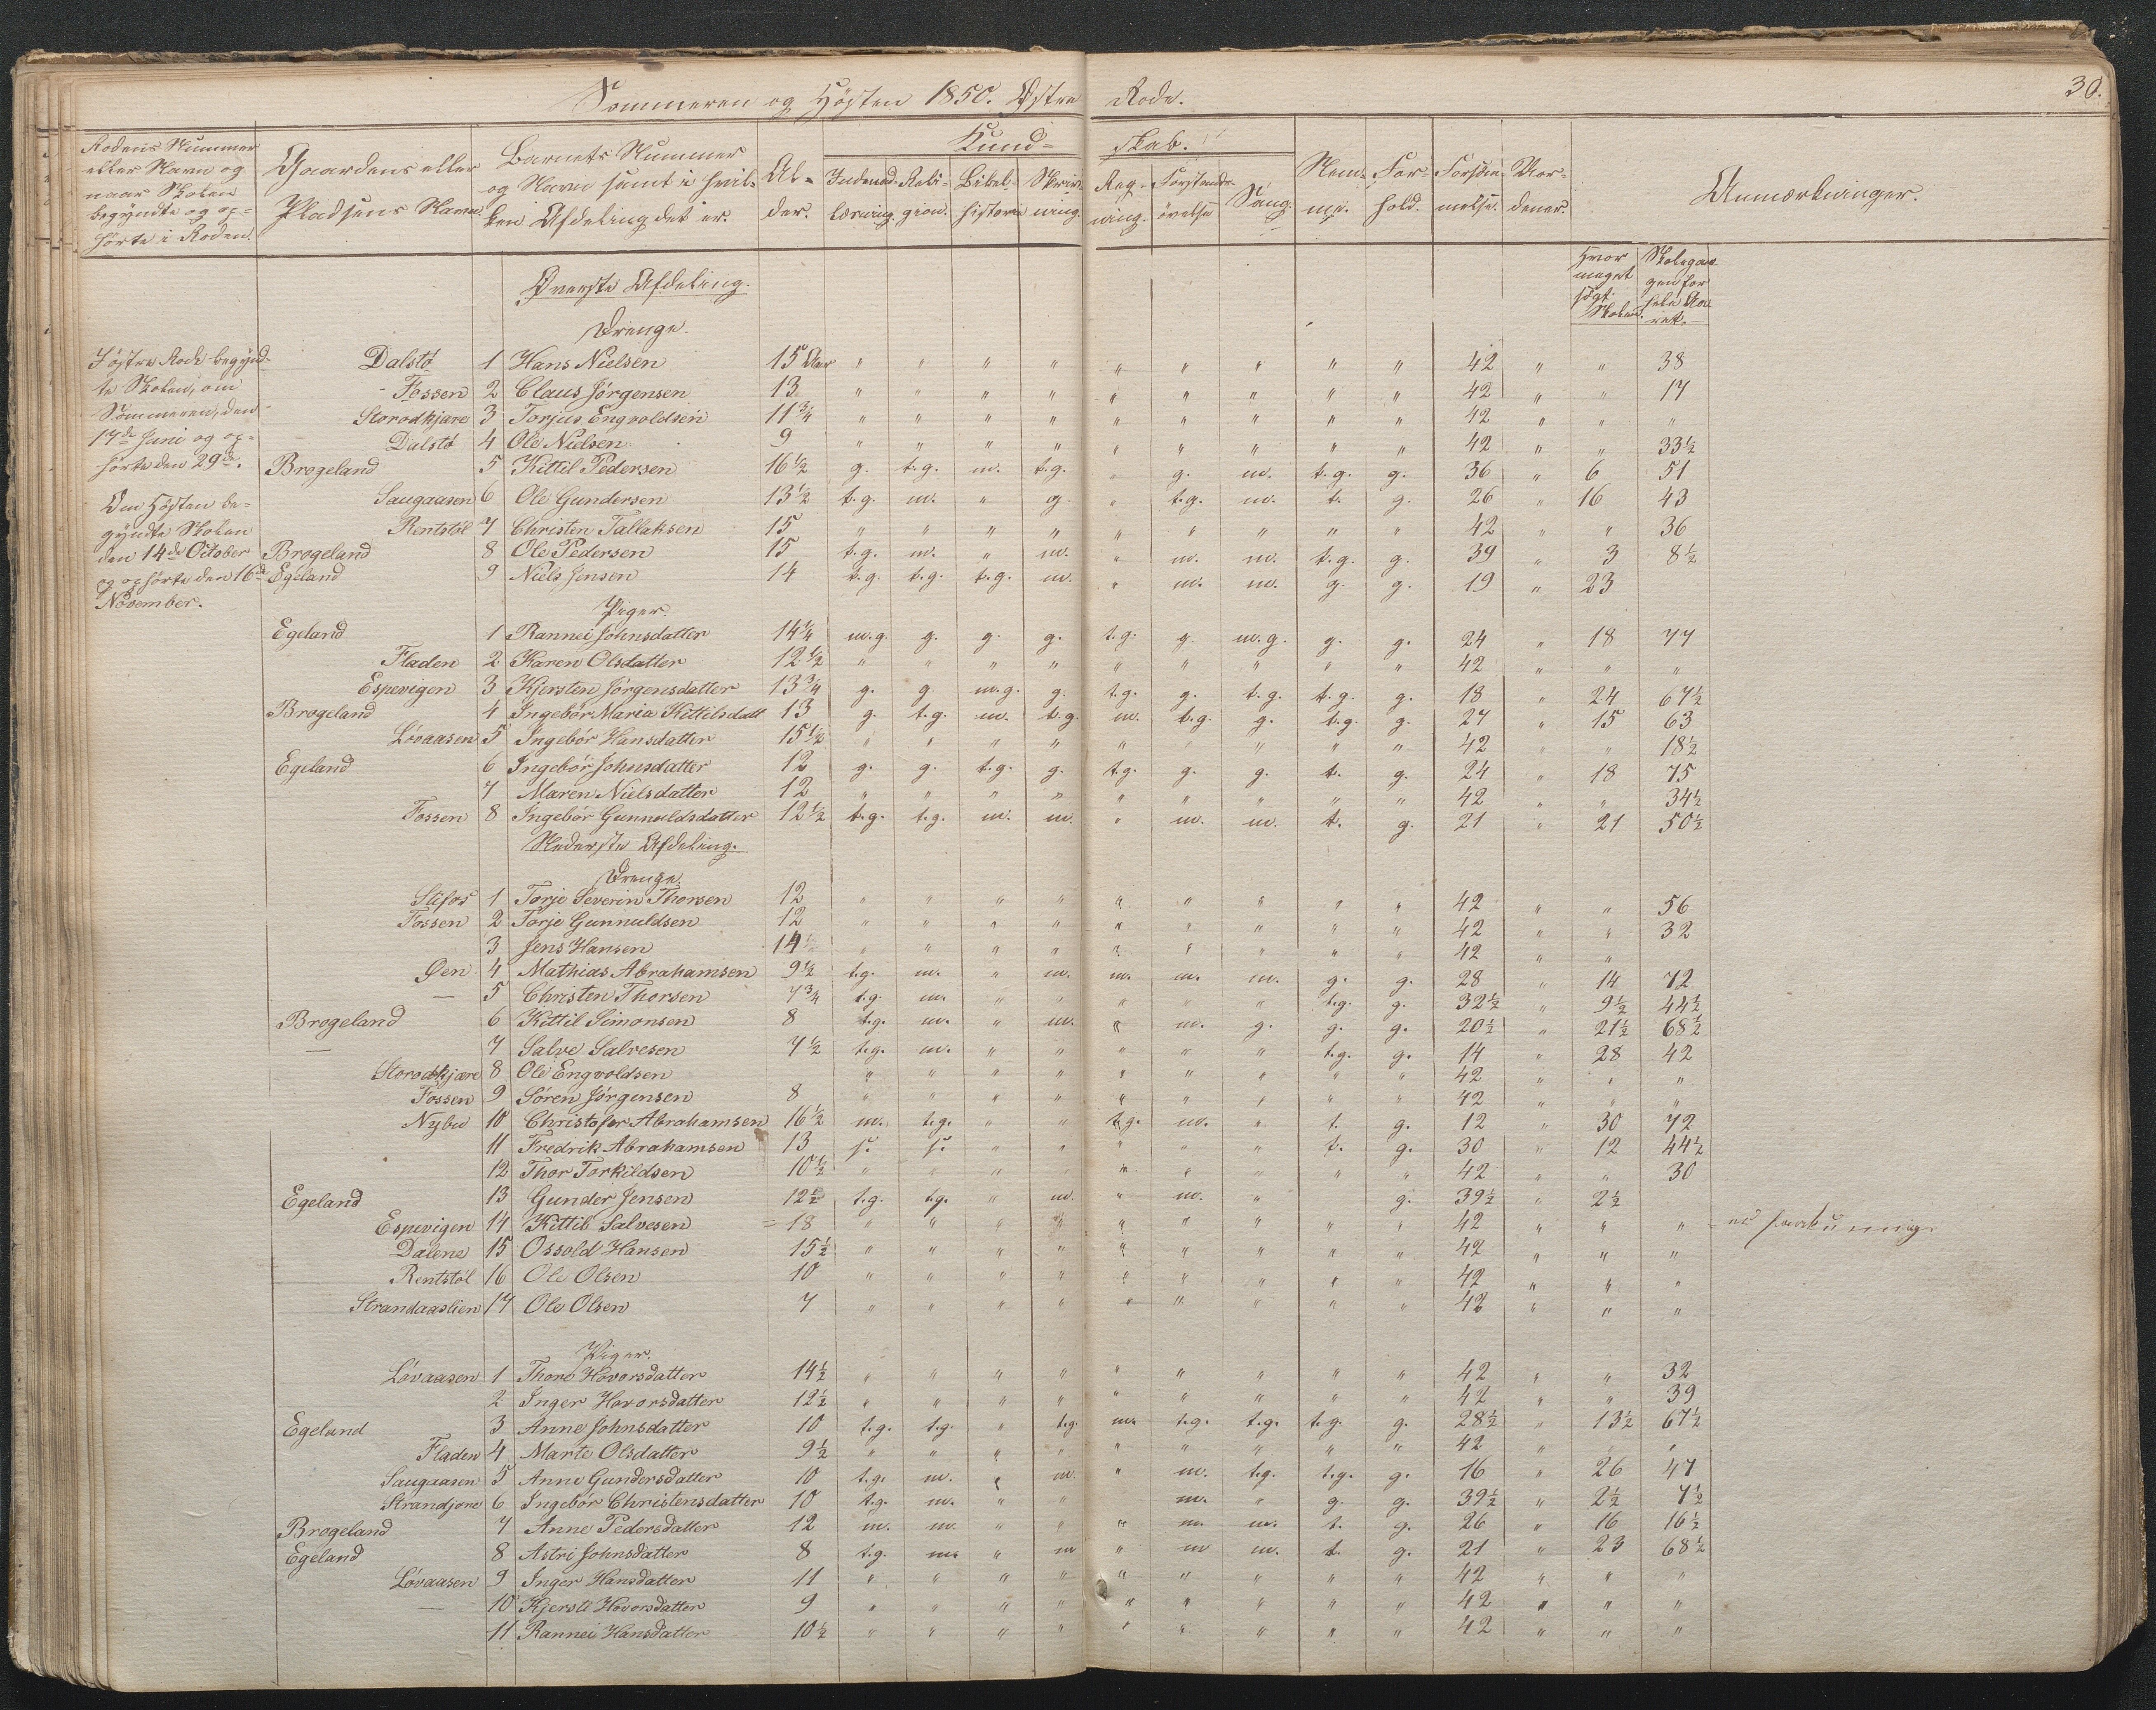 30.
Sommeren og Høsten 1850. Østre Rode.
Rodens Nummer eller Navn og naar Skolen begyndte og op= hørte i Roden.
Gaardens eller Pladsens Navn.
Barnets Nummer og Navn samt i hvil= ken Afdeling det er.
Al= der.
Kund= skab.
Indenad= læsning. Reli= gion. Bibel= historie Skriv= ning. Reg= ning. Forstands= øvelse Sang.
Nem= me. For= hold. Forsøm= melse. Vor= dener.
Anmærkninger.
Hvor meget søgt Skolen.
Skolegan gen for hele Aa ret.
I østre Rode begynd=
te Skolen, om
Sommeren, den
17de Juni og op=
hørte den 29de.
Om Høsten be=
gyndte Skolen
den 14de October
og ophørte den 16de
November.
Øverste Afdeling.
Drenge.
Dalstø 1 Hans Nielsen 15 Aar " " " " " " " " " 42 " " 38
Fossen 2 Claus Jørgensen 13 " " " " " " " " " 42 " " 17
Storodkjare 3 Torjus Engvoldsen 11 3/4 " " " " " " " " " 42 " " "
Dalstø 4 Ole Nielsen 9 " " " " " " " " " 42 " " 33 1/2
Brogeland 5 Kittil Pedersen 16 1/2 g. t.g. m. t.g. " g. m. t.g. g. 36 " 6 51
Saugaasen 6 Ole Gundersen 13 1/2 t.g. m. " g. " t.g. m. t. g. 26 " 16 43
Rentstøl 7 Christen Tallaksen 15 " " " " " " " " " 42 " " 36
Brogeland 8 Ole Pedersen 15 t.g. m. " m. " m. m. t.g. g. 39 " 3 8 1/2
Egeland 9 Niels Jensen 14 t.g. t.g. t.g. m. " m. m. g. g. 19 " 23
Piger.
Egeland 1 Rannei Johnsdatter 14 1/4 m.g. g. g. g. t.g. g. m.g. g. g. 24 " 18 77
Fladen 2 Karen Olsdatter 12 1/2 " " " " " " " " " 42 " " "
Espevigen 3 Kjersten Jørgensdatter 13 3/4 g. g. m.g. g. t.g. g. t.g. t.g. g. 18 " 24 67 1/2
Brogeland 4 Ingebør Maria Kittilsdatt 13 g. t.g. m. t.g. m. t.g. g. t.g. g. 27 " 15 63
Løvaasen 5 Ingebør Hansdatter 15 1/2 " " " " " " " " " 42 " " 18 1/2
Egeland 6 Ingebør Johnsdatter 12 g. g. t.g. g. t.g. g. g. t. g. 24 " 18 75
7 Maren Nielsdatter 12 " " " " " " " " " 42 " " 34 1/2
Fossen 8 Ingebør Gunnuldsdatter 12 1/2 t.g. t.g. m. m. " m. m. t. g. 21 " 21 50 1/2
Nederste Afdeling.
Drenge.
Stifos 1 Torje Severin Thorsen 12 " " " " " " " " " 42 " " 56
Fossen 2 Torje Gunnuldsen 12 " " " " " " " " " 42 " " 32
3 Jens Hansen 14 " " " " " " " " " 42 " "
Øen 4 Mathias Abrahamsen 9 1/2 t.g. m. " m. m. m. m. g. g. 28 " 14 72
— 5 Christen Thorsen 7 3/4 t.g. m. " " " " " t.g. g. 32 1/2 " 9 1/2 44 1/2
Brogeland 6 Kittil Simonsen 8 t.g. m. " m. " m. g. g. g. 20 1/2 " 21 1/2 68 1/2
— 7 Salve Salvesen 7 1/2 t.g. m. " " " " " t.g. g. 14 " 28 42
Storodkjære 8 Ole Engvoldsen " " " " " " " " " 42 " " "
Fossen 9 Søren Jørgensen 8 " " " " " " " " " 42 " " "
Nybu 10 Christofer Abrahamsen 16 1/2 m. t.g. " " t.g. m. " t. g. 12 " 30 72
11 Fredrik Abrahamsen 13 s. s. " " " " " t. g. 30 " 12 44 1/2
12 Thor Torkildsen 10 1/2 " " " " " " " " " 42 " " 30
Egeland 13 Gunder Jensen 12 1/2 t.g. t.g. " m. " m. " g. 39 1/2 " 2 1/2
Espevigen 14 Kittil Salvesen = 18 " " " " " " " " " 42 " " "
Dalene 15 Ossold Hansen 15 1/2 " " " " " " " " " 42 " " "
Rentstøl 16 Ole Olsen 10 " " " " " " " " " 42 " " "
Strandaaslien 17 Ole Olsen 7 " " " " " " " " " 42 " " "
Piger.
Løvaasen 1 Thore Hovorsdatter 14 1/2 " " " " " " " " " 42 " " 32
2 Inger Hovorsdatter 12 1/2 " " " " " " " " " 42 " " 39
Egeland 3 Anne Johnsdatter 10 t.g. t.g. " t.g. m. t.g. t.g. t.g. g. 28 1/2 " 13 1/2 67 1/2
Fladen 4 Marte Olsdatter 9 1/2 " " " " " " " " " 42 " " "
Saugaasen 5 Anne Gundersdatter 10 t.g. m. " m. " m. t.g. t.g. g. 16 " 26 47
Strandjore 6 Ingebør Christensdatter 10 t.g. m. " " m. " g. g. 39 1/2 " 2 1/2 7 1/2
Brogeland 7 Anne Pedersdatter 12 m. m. " " " m. m. t. g. 26 " 16 16 1/2
Egeland 8 Astri Johnsdatter 8 t.g. m. " m " m m. t. g. 21 " 23 68 1/2
Løvaasen 9 Inger Hansdatter 11 " " " " " " " " " 42 " " "
— 10 Kjersti Hovorsdatter 9 " " " " " " " " " 42 " " "
11 Rannei Hansdatter 10 1/2 " " " " " " " " " 42 " " "